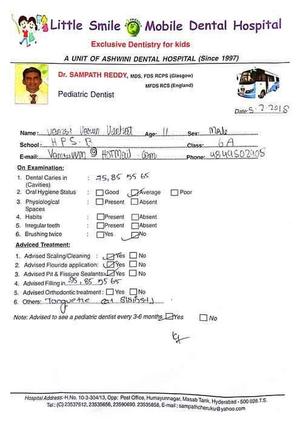 Little Smile Mobile Dental Hospital
Exclusive Dentistry for kids
A UNIT OF ASHWINI DENTAL HOSPITAL (Since 1997)
Dr. SAMPATH REDDY, MDS, FDS RCPS (Glasgow)
MFDS RCS (England)
Pediatric Dentist
Date:
Name: Age: 11 Sex: Male
School: H P S. B Class: 6A
E-mail: @ Hotmail com Phone:
On Examination:
1. Dental Caries in : 75, 85 55 65
(Cavities)
2. Oral Hygiene Status : Good Average Poor
3. Physiological : Present Absent
Spaces
4. Habits : Present Absent
5. Irregular teeth : Present Absent
6. Brushing twice : Yes No
Adviced Treatment:
1. Advised Scaling/Cleaning : Yes No
2. Advised Flouride application: Yes No
3. Advised Pit & Fissure Sealants: Yes No
4. Advised Filling in 85 55 65
5. Advised Orthodontic treatment : Yes No
6. Others:
Note: Advised to see a pediatric dentist every 3-6 months Yes No
Hospital Address: H.No. 10-3-304/13, Opp: Post Office, Humayunnagar, Masab Tank, Hyderabad - 500 028 T.S.
Tel: (C) 23537612, 23535656, 23590690, 23535658, E-mail: sampathcheruku@yahoo.com